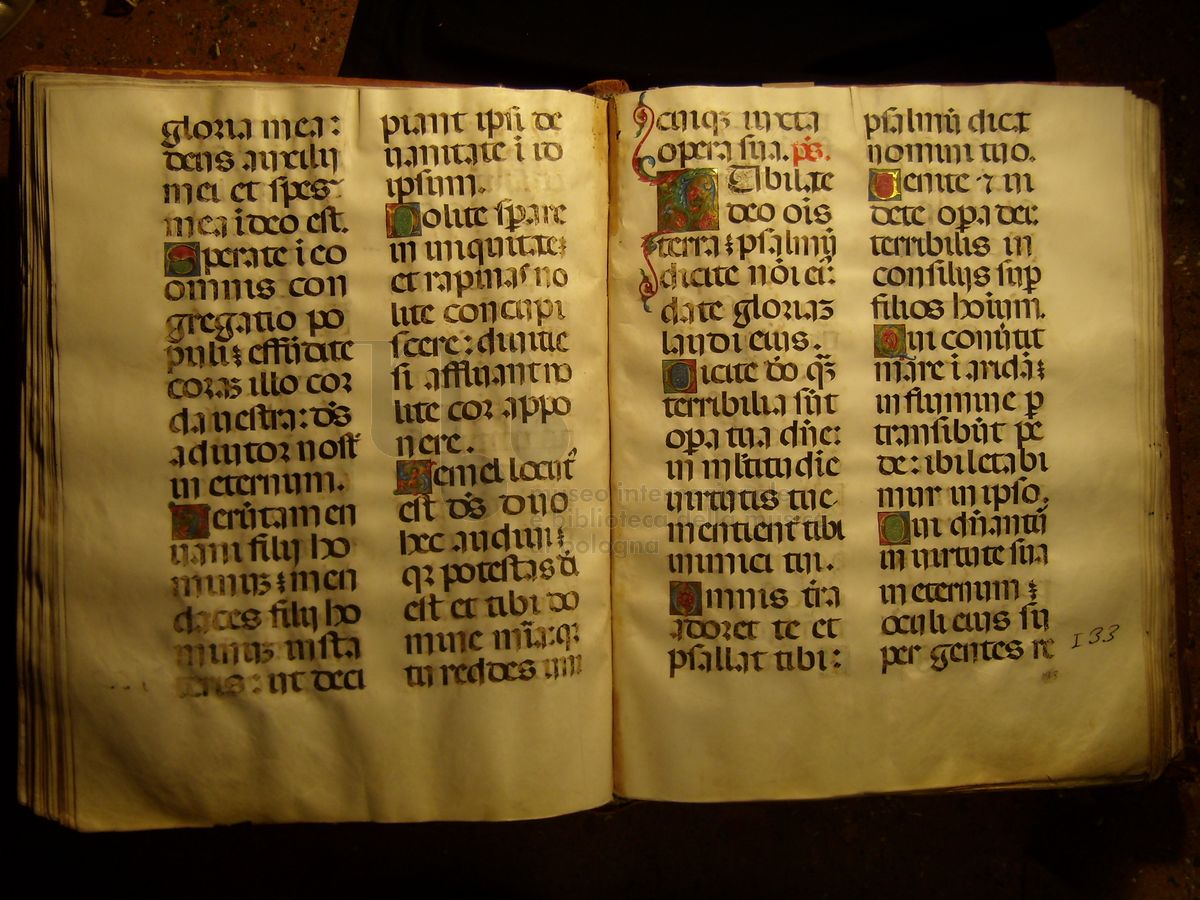 gloria mea:
deus auxilij
mei et spes
mea i deo est.
Sperate i eo
omnis con
gregatio po
puli: effūdite
coraz illo cor
da uestra: dōs
adiutor nosť
in eternum.
Uerūtamen
uani filij ho
minuz: men
daces filij ho
minuz insta
teris: ut deci
piant ipsi de
uanitate i id
ipsum.
Nolite sperare
in iniquitate:
et rapinas no
lite concupi
scere: diuitie
si affluant no
lite cor appo
nere.
Semel locut᷒
est dōs duo
hec audiui:
qz potestas dī
est et tibi do
mine mīa: qz
tu reddes uni
cuiqz iuxta
opera sua. p̄s.
Iubilate
deo ois
terra: psalmū
dicite nōi ei᷒:
date gloriaz
laudi eius.
Dicite deo qz̄
terribilia sūt
opa tua dn̄e:
in mltitudie
uirtutis tue
mentient᷒ tibi
inimici tui.
Omnis tr̄a
adoret te et
psallat tibi:
psalmū dicat
nomini tuo.
Uenite ⁊ ui
dete opa dei:
terribilis in
consilijs sup
filios hoium.
Qui conuertit
mare i arida:
in flumine p
transibūt pe
de: ibi letabi
mur in ipso.
Qui dn̄antur
in uirtute sua
in eternum:
oculi eius su
per gentes re
133
museo internazionale
e biblioteca della musica
di bologna